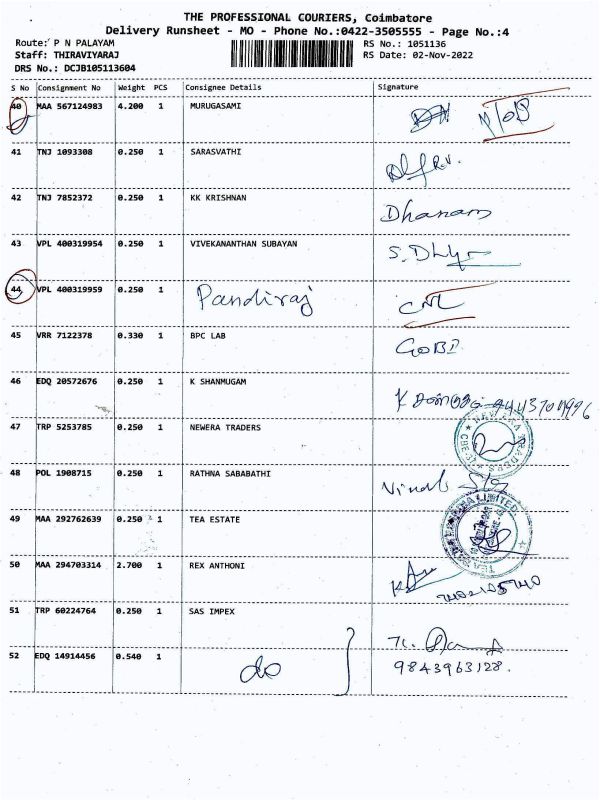 THE PROFESSIONAL COURIERS, Coimbatore
Delivery Runsheet - MO - Phone No.:0422-3505555 - Page No.:4
Route: P N PALAYAM RS No.: 1051136
Staff: THIRAVIYARAJ RS Date: 02-Nov-2022
DRS No.: DCJB105113604
S No Consignment No Weight PCS Consignee Details Signature
40 MAA 567124983 4.200 1 MURUGASAMI
41 TNJ 1093308 0.250 1 SARASVATHI
42 TNJ 7852372 0.250 1 KK KRISHNAN Dhanam
43 VPL 400319954 0.250 1 VIVEKANANTHAN SUBAYAN
44 VPL 400319959 0.250 1 Pandiraj
45 VRR 7122378 0.330 1 BPC LAB GOBI
46 EDQ 20572676 0.250 1 K SHANMUGAM
47 TRP 5253785 0.250 1 NEWERA TRADERS
48 POL 1908715 0.250 1 RATHNA SABABATHI
49 MAA 292762639 0.250 1 TEA ESTATE
50 MAA 294703314 2.700 1 REX ANTHONI
51 TRP 60224764 0.250 1 SAS IMPEX
52 EDQ 14914456 0.540 1 do 9843963128.